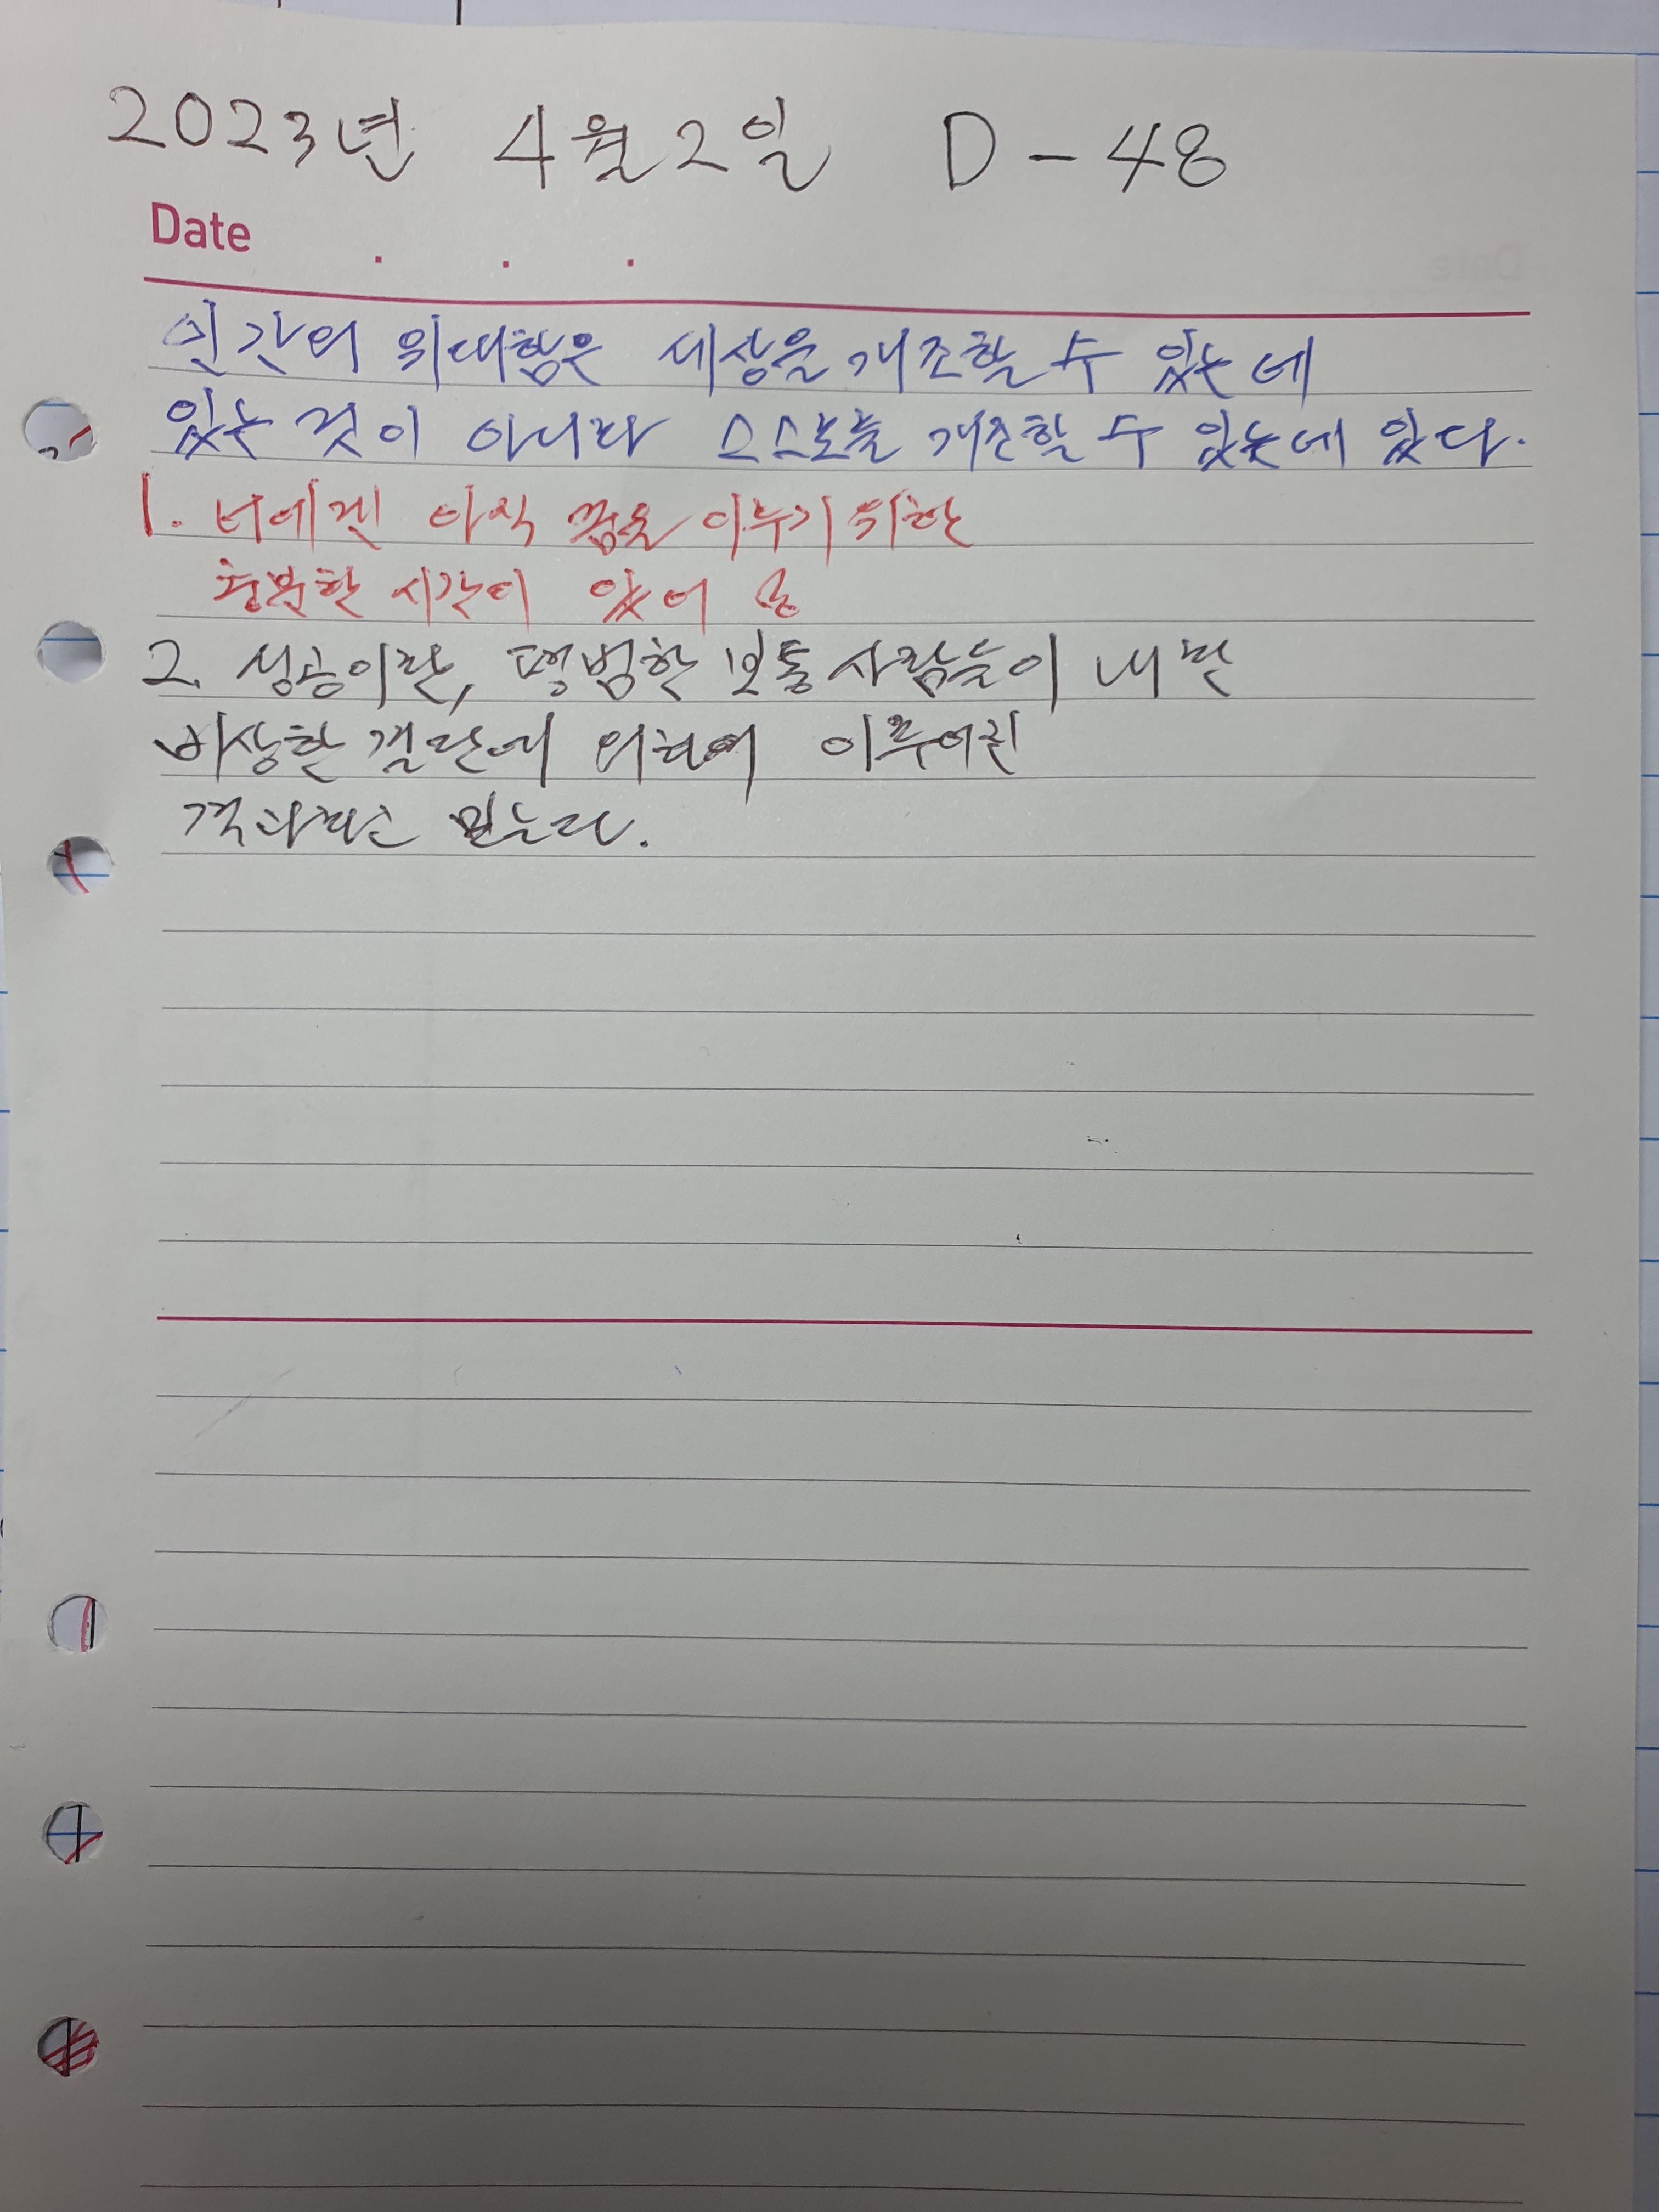 2023년 4월2일 D-48
Date . . .
인간의 위대함은 세상을 개조할 수 있는 데
있는 것이 아니라 스스로를 개조할 수 있는데 있다.
1. 너에겐 아직 꿈을 이루기 위한
충분한 시간이 있어
2. 성공이란, 평범한 보통 사람들이 내린
비상한 결단에 의하여 이루어진
믿는다.